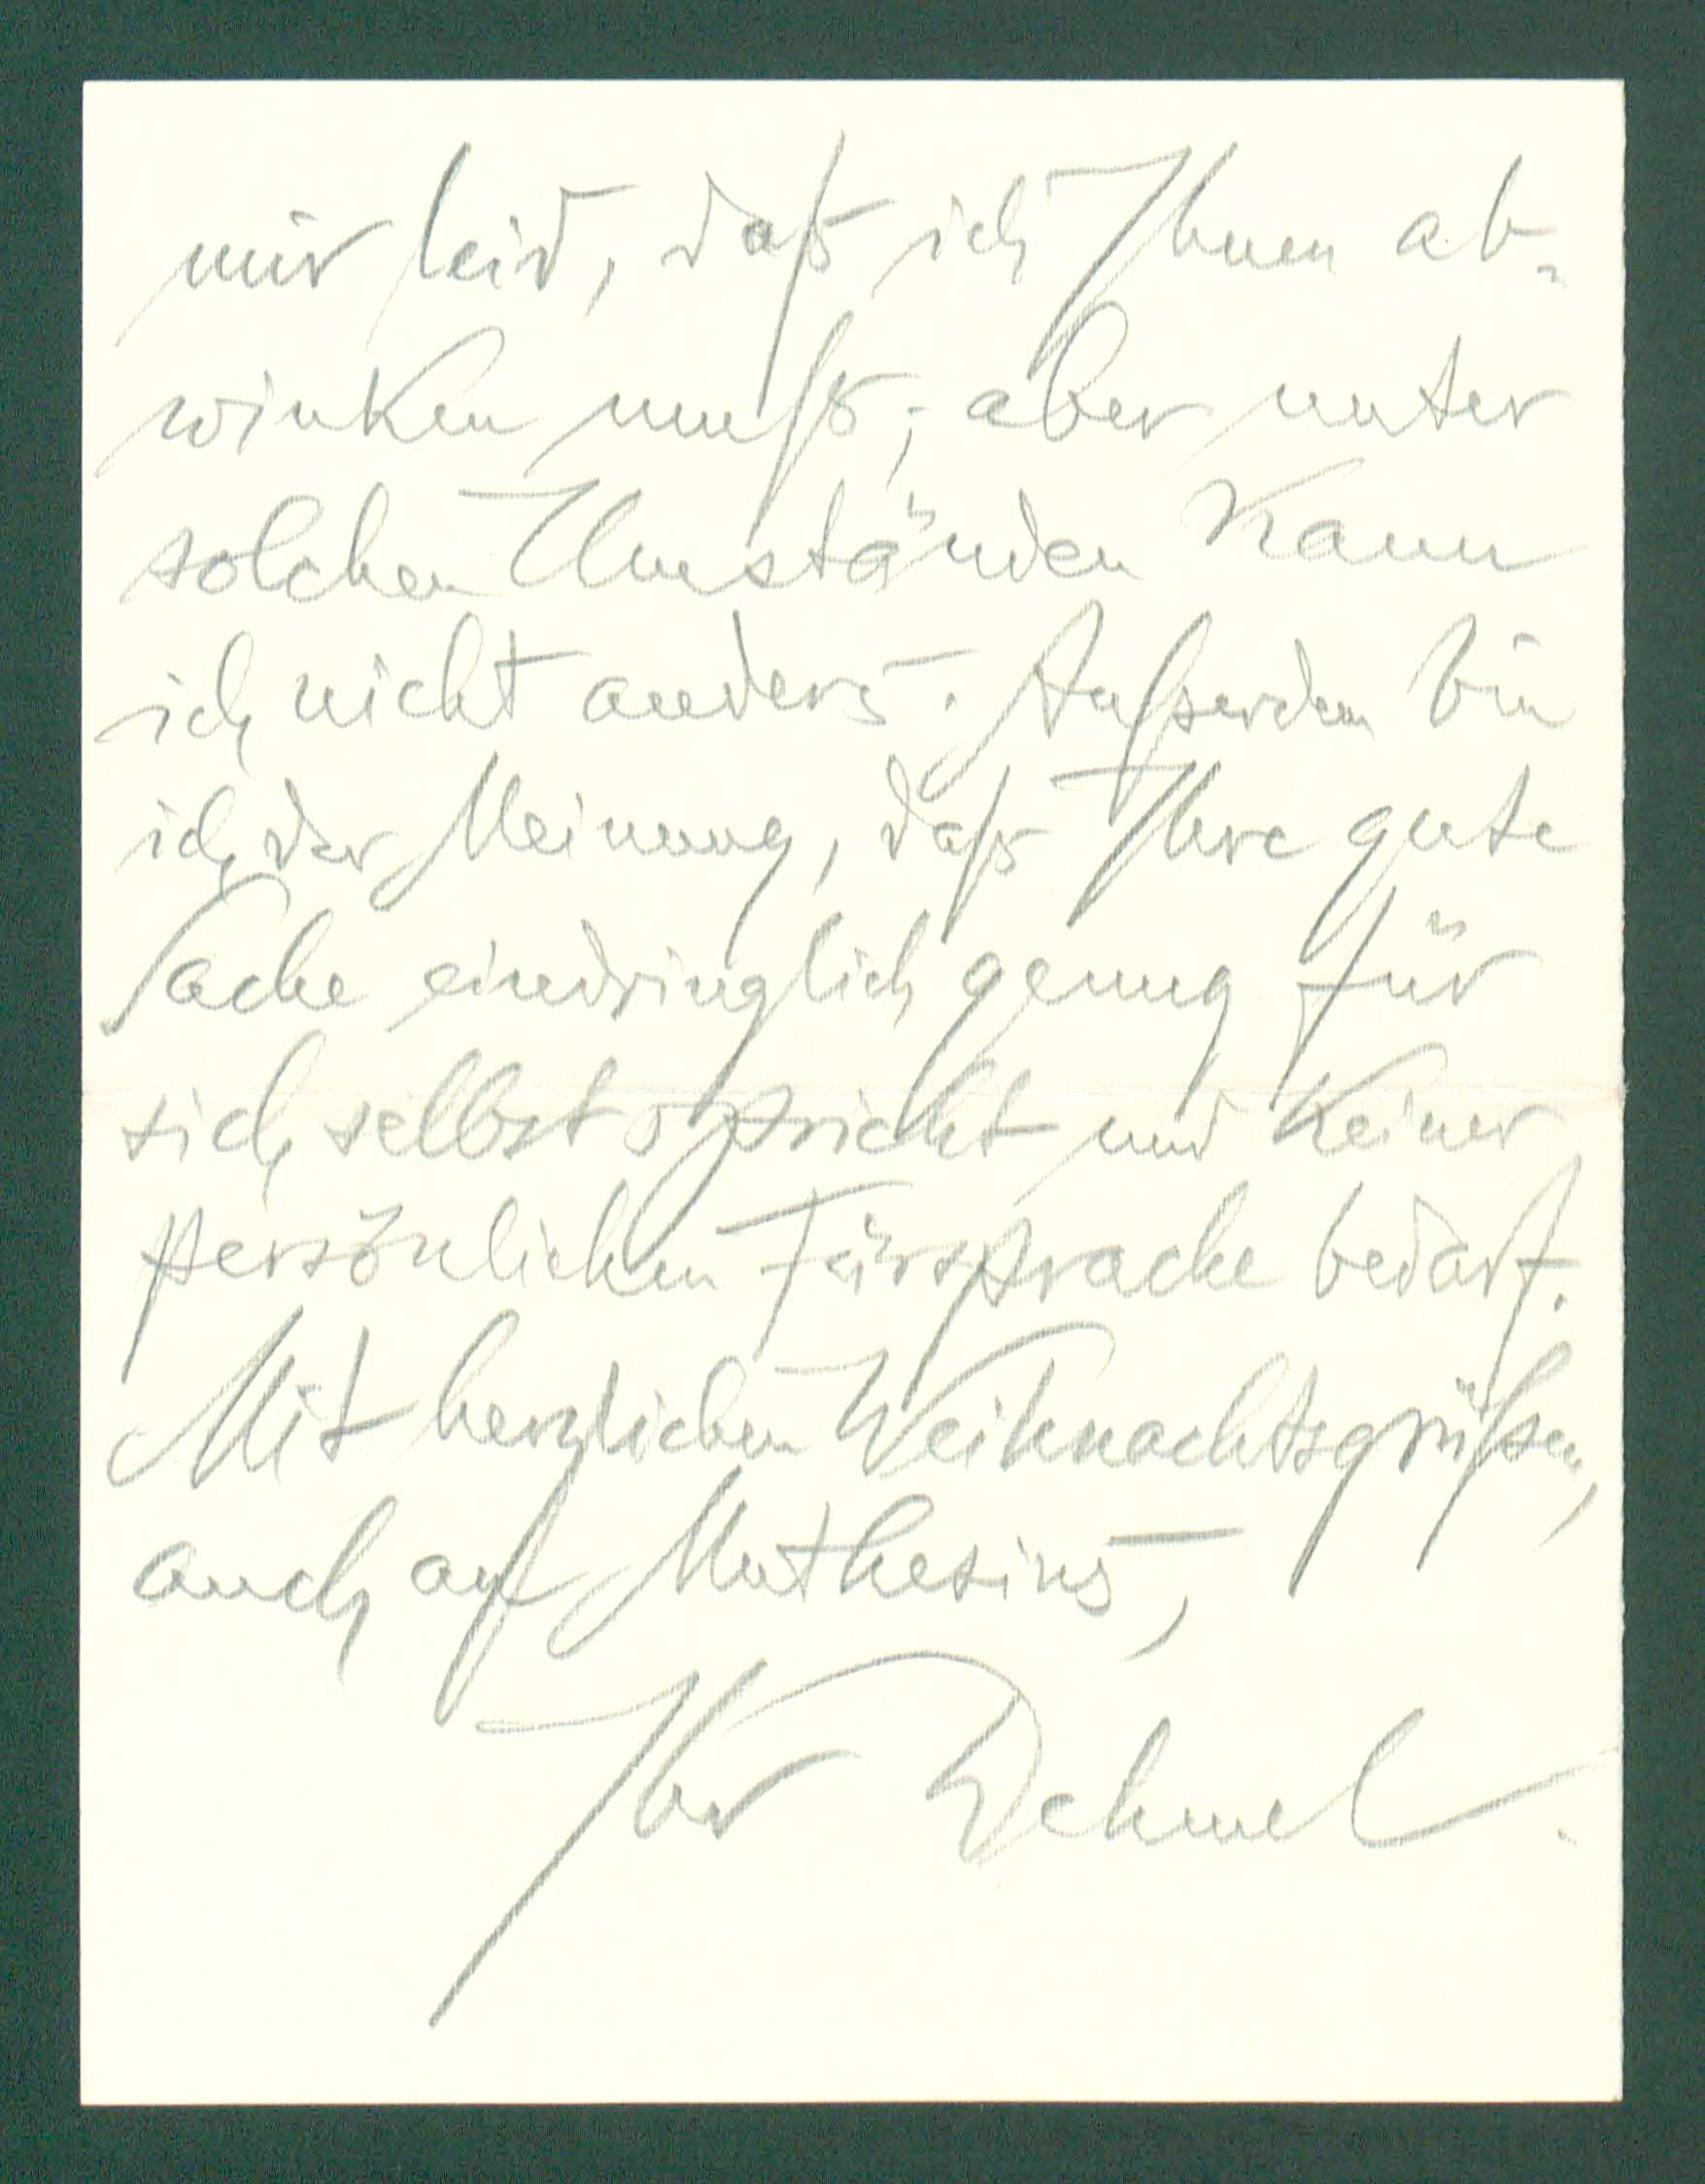 mir leid, daß ich Ihnen ab-
winken muß; aber unter
solchen Umständen kann
ich nicht anders. Außerdem bin
ich der Meinung, daß Ihre gute
Sache eindringlich genug für
sich selbst spricht und keiner
persönlichen Fürsprache bedarf.
Mit herzlichen Weihnachtsgrüßen,
auch auf Muthesius,
Ihr Dehmel.